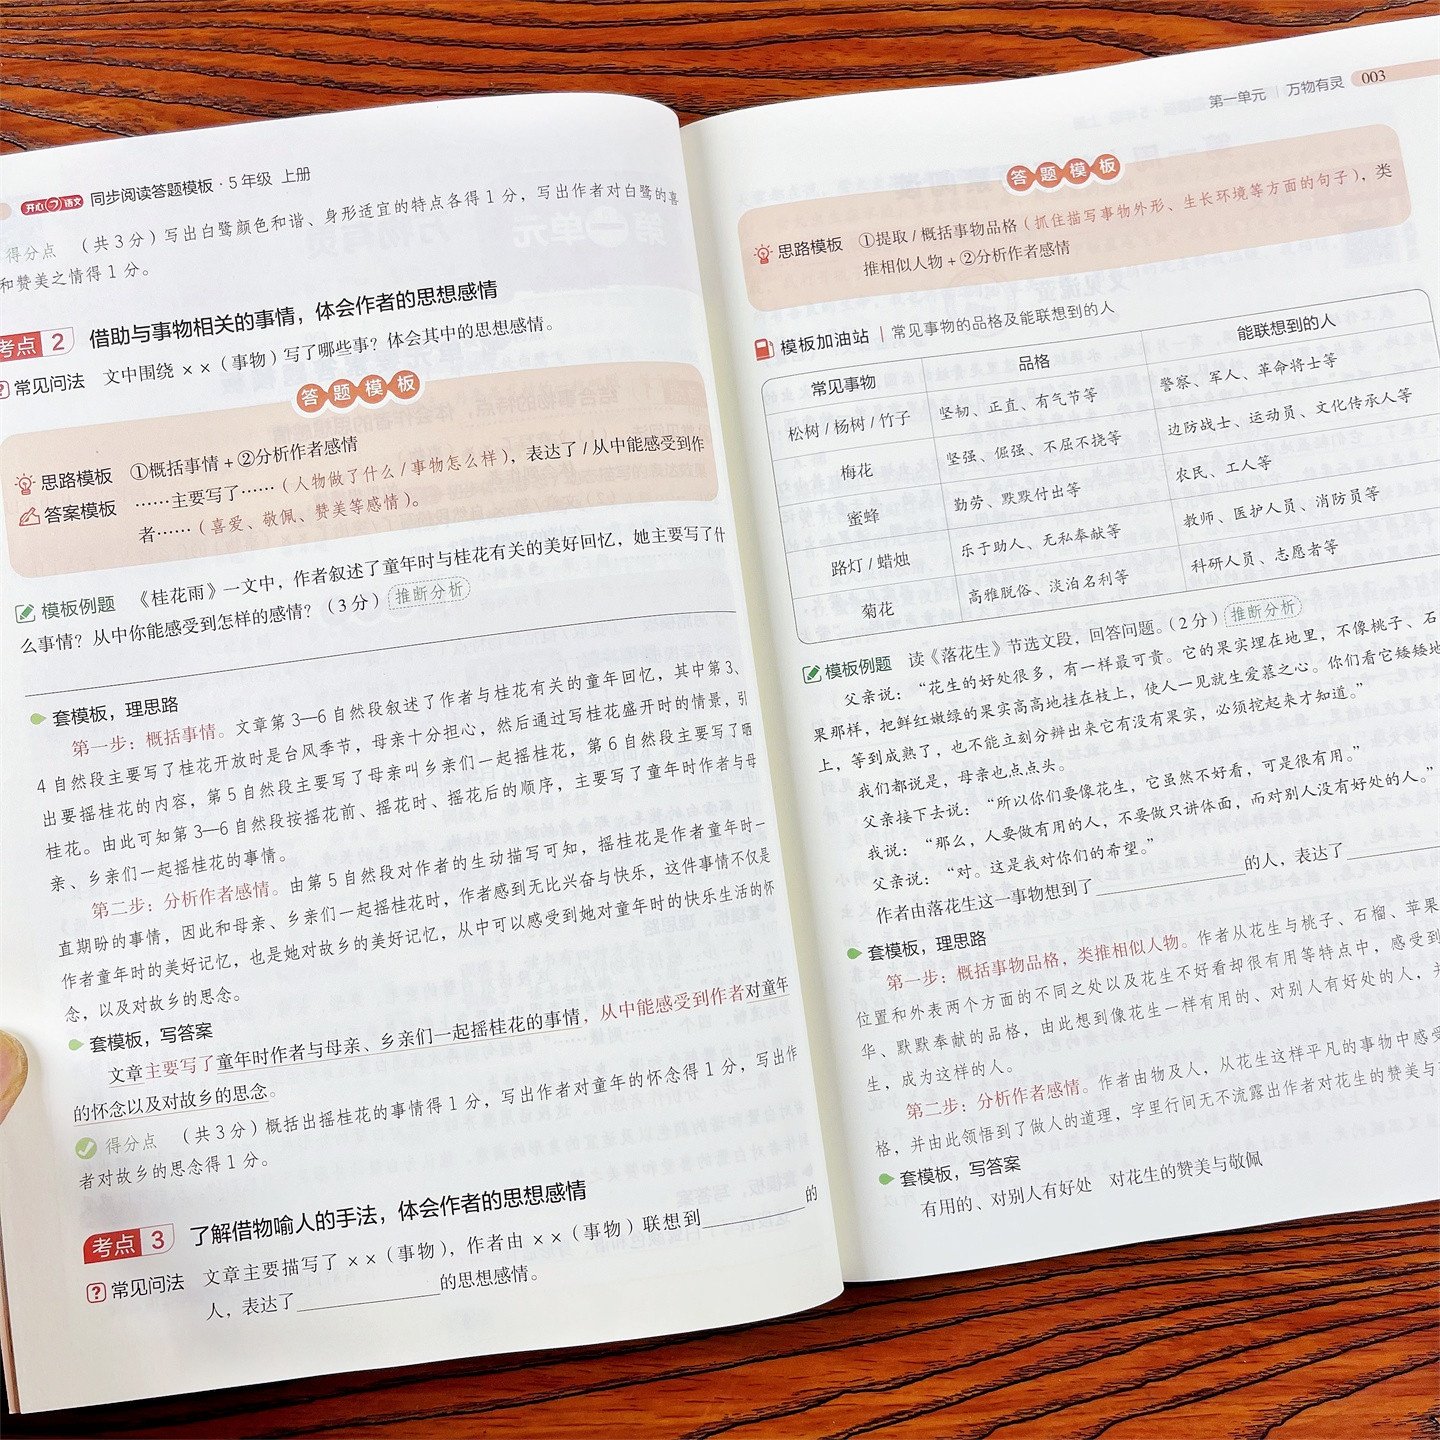 开心语文 同步阅读答题模板·5年级 上册
得分点 （共3分）写出白鹭颜色和谐、身形适宜的特点各得1分，写出作者对白鹭的喜
和赞美之情得1分。
考点 2 借助与事物相关的事情，体会作者的思想感情
常见问法 文中围绕××（事物）写了哪些事？体会其中的思想感情。
答题模板
思路模板 ①概括事情+②分析作者感情
答案模板 ……主要写了……（人物做了什么/事物怎么样），表达了/从中能感受到作
者……（喜爱、敬佩、赞美等感情）。
模板例题 《桂花雨》一文中，作者叙述了童年时与桂花有关的美好回忆，她主要写了什
么事情？从中你能感受到怎样的感情？（3分） 推断分析
套模板，理思路
第一步：概括事情。文章第3—6自然段叙述了作者与桂花有关的童年回忆，其中第3、
4自然段主要写了桂花开放时是台风季节，母亲十分担心，然后通过写桂花盛开时的情景，引
出要摇桂花的内容，第5自然段主要写了母亲叫乡亲们一起摇桂花，第6自然段主要写了晒
桂花。由此可知第3—6自然段按摇花前、摇花时、摇花后的顺序，主要写了童年时作者与母
亲、乡亲们一起摇桂花的事情。
第二步：分析作者感情。由第5自然段对作者的生动描写可知，摇桂花是作者童年时一
直期盼的事情，因此和母亲、乡亲们一起摇桂花时，作者感到无比兴奋与快乐，这件事情不仅是
作者童年时的美好记忆，也是她对故乡的美好记忆，从中可以感受到她对童年时的快乐生活的怀
念，以及对故乡的思念。
套模板，写答案
文章主要写了童年时作者与母亲、乡亲们一起摇桂花的事情，从中能感受到作者对童年
的怀念以及对故乡的思念。
得分点 （共3分）概括出摇桂花的事情得1分，写出作者对童年的怀念得1分，写出作
者对故乡的思念得1分。
考点 3 了解借物喻人的手法，体会作者的思想感情
常见问法 文章主要描写了××（事物），作者由××（事物）联想到__________的
人，表达了______________的思想感情。
第一单元 | 万物有灵 003
答题模板
思路模板 ①提取/概括事物品格（抓住描写事物外形、生长环境等方面的句子），类
推相似人物+②分析作者感情
模板加油站 | 常见事物的品格及能联想到的人
常见事物 品格 能联想到的人
松树/杨树/竹子 坚韧、正直、有气节等 警察、军人、革命将士等
梅花 坚强、倔强、不屈不挠等 边防战士、运动员、文化传承人等
蜜蜂 勤劳、默默付出等 农民、工人等
路灯/蜡烛 乐于助人、无私奉献等 教师、医护人员、消防员等
菊花 高雅脱俗、淡泊名利等 科研人员、志愿者等
模板例题 读《落花生》节选文段，回答问题。（2分） 推断分析
父亲说：“花生的好处很多，有一样最可贵。它的果实埋在地里，不像桃子、石
果那样，把鲜红嫩绿的果实高高地挂在枝上，使人一见就生爱慕之心。你们看它矮矮地
上，等到成熟了，也不能立刻分辨出来它有没有果实，必须挖起来才知道。”
我们都说是，母亲也点点头。
父亲接下去说：“所以你们要像花生，它虽然不好看，可是很有用。”
我说：“那么，人要做有用的人，不要做只讲体面，而对别人没有好处的人。”
父亲说：“对。这是我对你们的希望。”
作者由落花生这一事物想到了______________的人，表达了__________
套模板，理思路
第一步：概括事物品格，类推相似人物。作者从花生与桃子、石榴、苹果
位置和外表两个方面的不同之处以及花生不好看却很有用等特点中，感受到
华、默默奉献的品格，由此想到像花生一样有用的、对别人有好处的人，并
生，成为这样的人。
第二步：分析作者感情。作者由物及人，从花生这样平凡的事物中感受
格，并由此领悟到了做人的道理，字里行间无不流露出作者对花生的赞美与
套模板，写答案
有用的、对别人有好处 对花生的赞美与敬佩